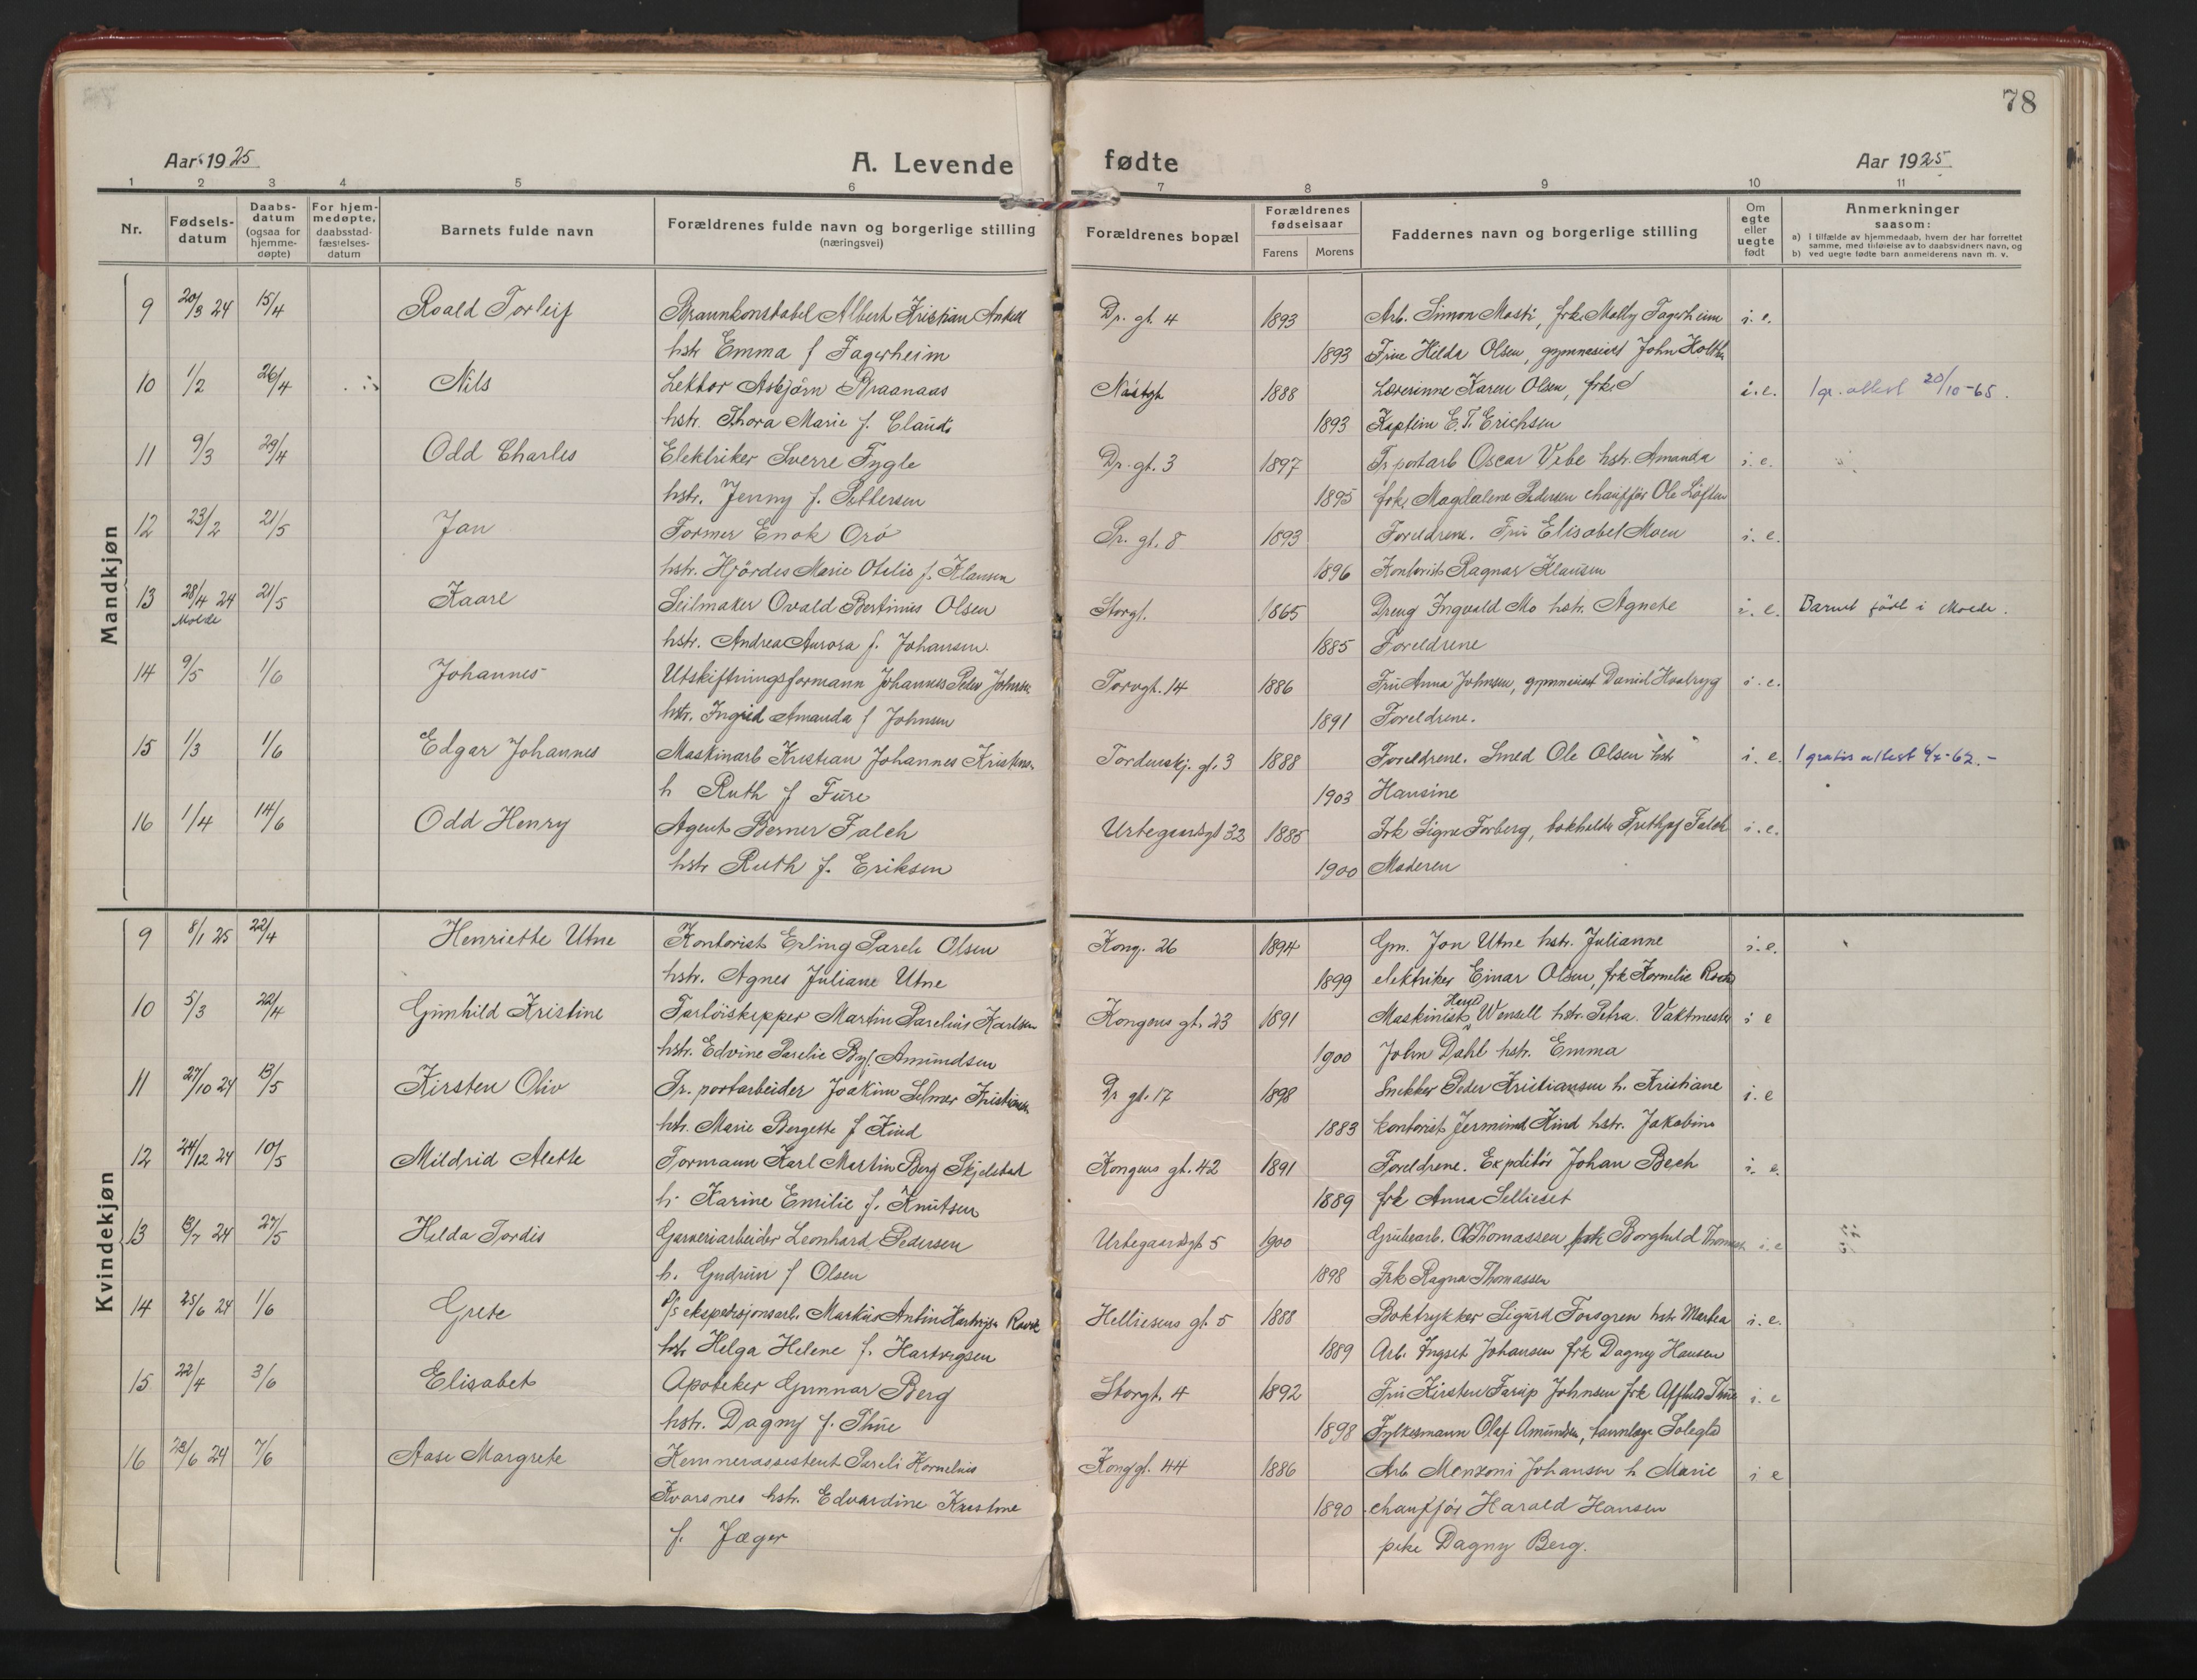 78
Aar 1925
A. Levende fødte
Aar 1925
1 2 3 4 5 6 7 8 9 10 11
Nr.
Fødsels-datum
Daabs-datum (ogsaa for hjemme-døpte)
For hjem-medøpte, daabsstad-fæstelses-datum
Barnets fulde navn
Forældrenes fulde navn og borgerlige stilling (næringsvei)
Forældrenes bopæl
Forældrenes fødselsaar
Farens Morens
Faddernes navn og borgerlige stilling
Om egte eller uegte født
Anmerkninger saasom:
a) i tilfælde av hjemmedaab, hvem der har forrettet samme, med tilføielse av to daabsvidners navn, og
b) ved uegte fødte barn anmelderens navn m. v.
Mandkjøn
9 20/3 24 15/4 Roald Torleif Braunkonstabel Albert Kristian Dr. gt. 4 1893 Arb. Simon Mosti, frk. Molly Fagerheim i. e.
hstr Emma f Fagerheim 1893 Frue Hilda Olsen, gymnasiast John
10 1/2 26/4 Nils Lektor Asbjörn Braanaas 1888 Lærerinne Karen Olsen, frk. i. e. 1 gr. attest 20/10-65.
hstr. Thora Marie f. 1893 Kaptein E. T. Erichsen
11 9/3 29/4 Odd Charles Elektriker Sverre Fygle Dr. gt. 3 1897 Tr. portarb Oscar Vebe hstr. Amanda i. e.
hstr. Jenny f. Pettersen 1895 frk. Magdalene Pedersen chauffør Ole
12 23/2 21/5 Jan Former Enok Orö Pr. gt. 8 1893 Foreldrene. Fru Elisabet Moen i. e.
hstr. Hjördes Marie Otelie f. Klausen 1896 Kontorist Ragnar Klausen
13 28/4 24 21/5 Kaare Seilmaker Ovald Bertinius Olsen Storgt. 1865 Dreng Ingvald Mo hstr. Agnete i. e. Barnet född i Molde.
Molde hstr. Andrea Aurora f. Johansen. 1885 Foreldrene
14 9/5 1/6 Johannes Utskiftningsformann Johannes Peder Johnsen Torvgt. 14 1886 Fru Anna Johnsen, gymnasiast Daniel i. e.
hstr. Ingrid Amanda f Johnsen 1891 Foreldrene.
15 1/3 1/6 Edgar Johannes Maskinarb Kristian Johannes Tordenskj. gt. 3 1888 Foreldrene. Smed Ole Olsen hstr i. e. 1 gratis attest 6/7-62.-
h Ruth f Fure 1903 Hansine
16 1/4 14/6 Odd Henry Agent Berner Falch Urtegaardsgt 33 1885 Frk Signe Forberg, bokholder Frithjof Falch i. e.
hstr Ruth f. Eriksen 1900 Moderen
Kvindekjøn
9 8/1 25 22/4 Henriette Utne Kontorist Erling Pareli Olsen Kong. 26 1894 Gm. Jon Utne hstr. Julianne i. e.
hstr. Agnes Juliane Utne 1899 elektriker Einar Olsen, frk Kornelie
10 5/3 22/4 Gunhild Kristine Fartöiskipper Martin Parelius Karlsen Kongens gt. 23 1891 Maskinist Wensell hstr. Petra. Vaktmester i e
hstr. Edvine Parelie By f. Amundsen 1900 John Dahl hstr. Emma
11 27/10 24 13/5 Kirsten Oliv Tr. portarbeider Joakim Selmer Kristiansen Dr gt. 17 1898 Snekker Peder Kristiansen h. Kristiane i. e
hstr. Marie Bergette f Kind 1883 kontorist Jermund Kind hstr. Jakobine
12 24/12 24 10/5 Mildrid Alette Formann Karl Martin Berg Skjelstad Kongens gt. 42 1891 Foreldrene. Expeditör Johan Bech i. e.
h. Karine Emilie f. Knutsen 1889 frk Anna Sellieset
13 13/7 24 27/5 Hilda Tordis Garveriarbeider Leonhard Pedersen Urtegaardsgt 5 1900 Grubearb. O Thomassen frk Borghild i. e
h. Gudrun f Olsen 1898 Frk Ragna Thomassen
14 25/6 24 1/6 Grete D/S ekspedisjonsarb. Markus Antin Hartvigsen Hellesens gt. 5 1888 Boktrykker Sigurd Forsgren hstr Martea i. e.
hstr Helga Helene f. Hartvigsen 1889 Arb. Ingset Johansen frk Dagny Hansen
15 22/4 3/6 Elisabet Apoteker Gunnar Berg Storgt. 4 1892 Fru Kirsten Johnsen frk i. e
hstr. Dagny f. Thue 1898 Fylkesmann Olaf Amundsen,
16 23/6 24 7/6 Aase Margrete Kemnerassistent Pareli Kornelius Konggt. 44 1886 Arb Menzoni Johansen h Marie i e
Kvarsnes hstr. Edvardine Kristine 1890 chauffør Harald Hansen
f. Jæger pike Dagny Berg.